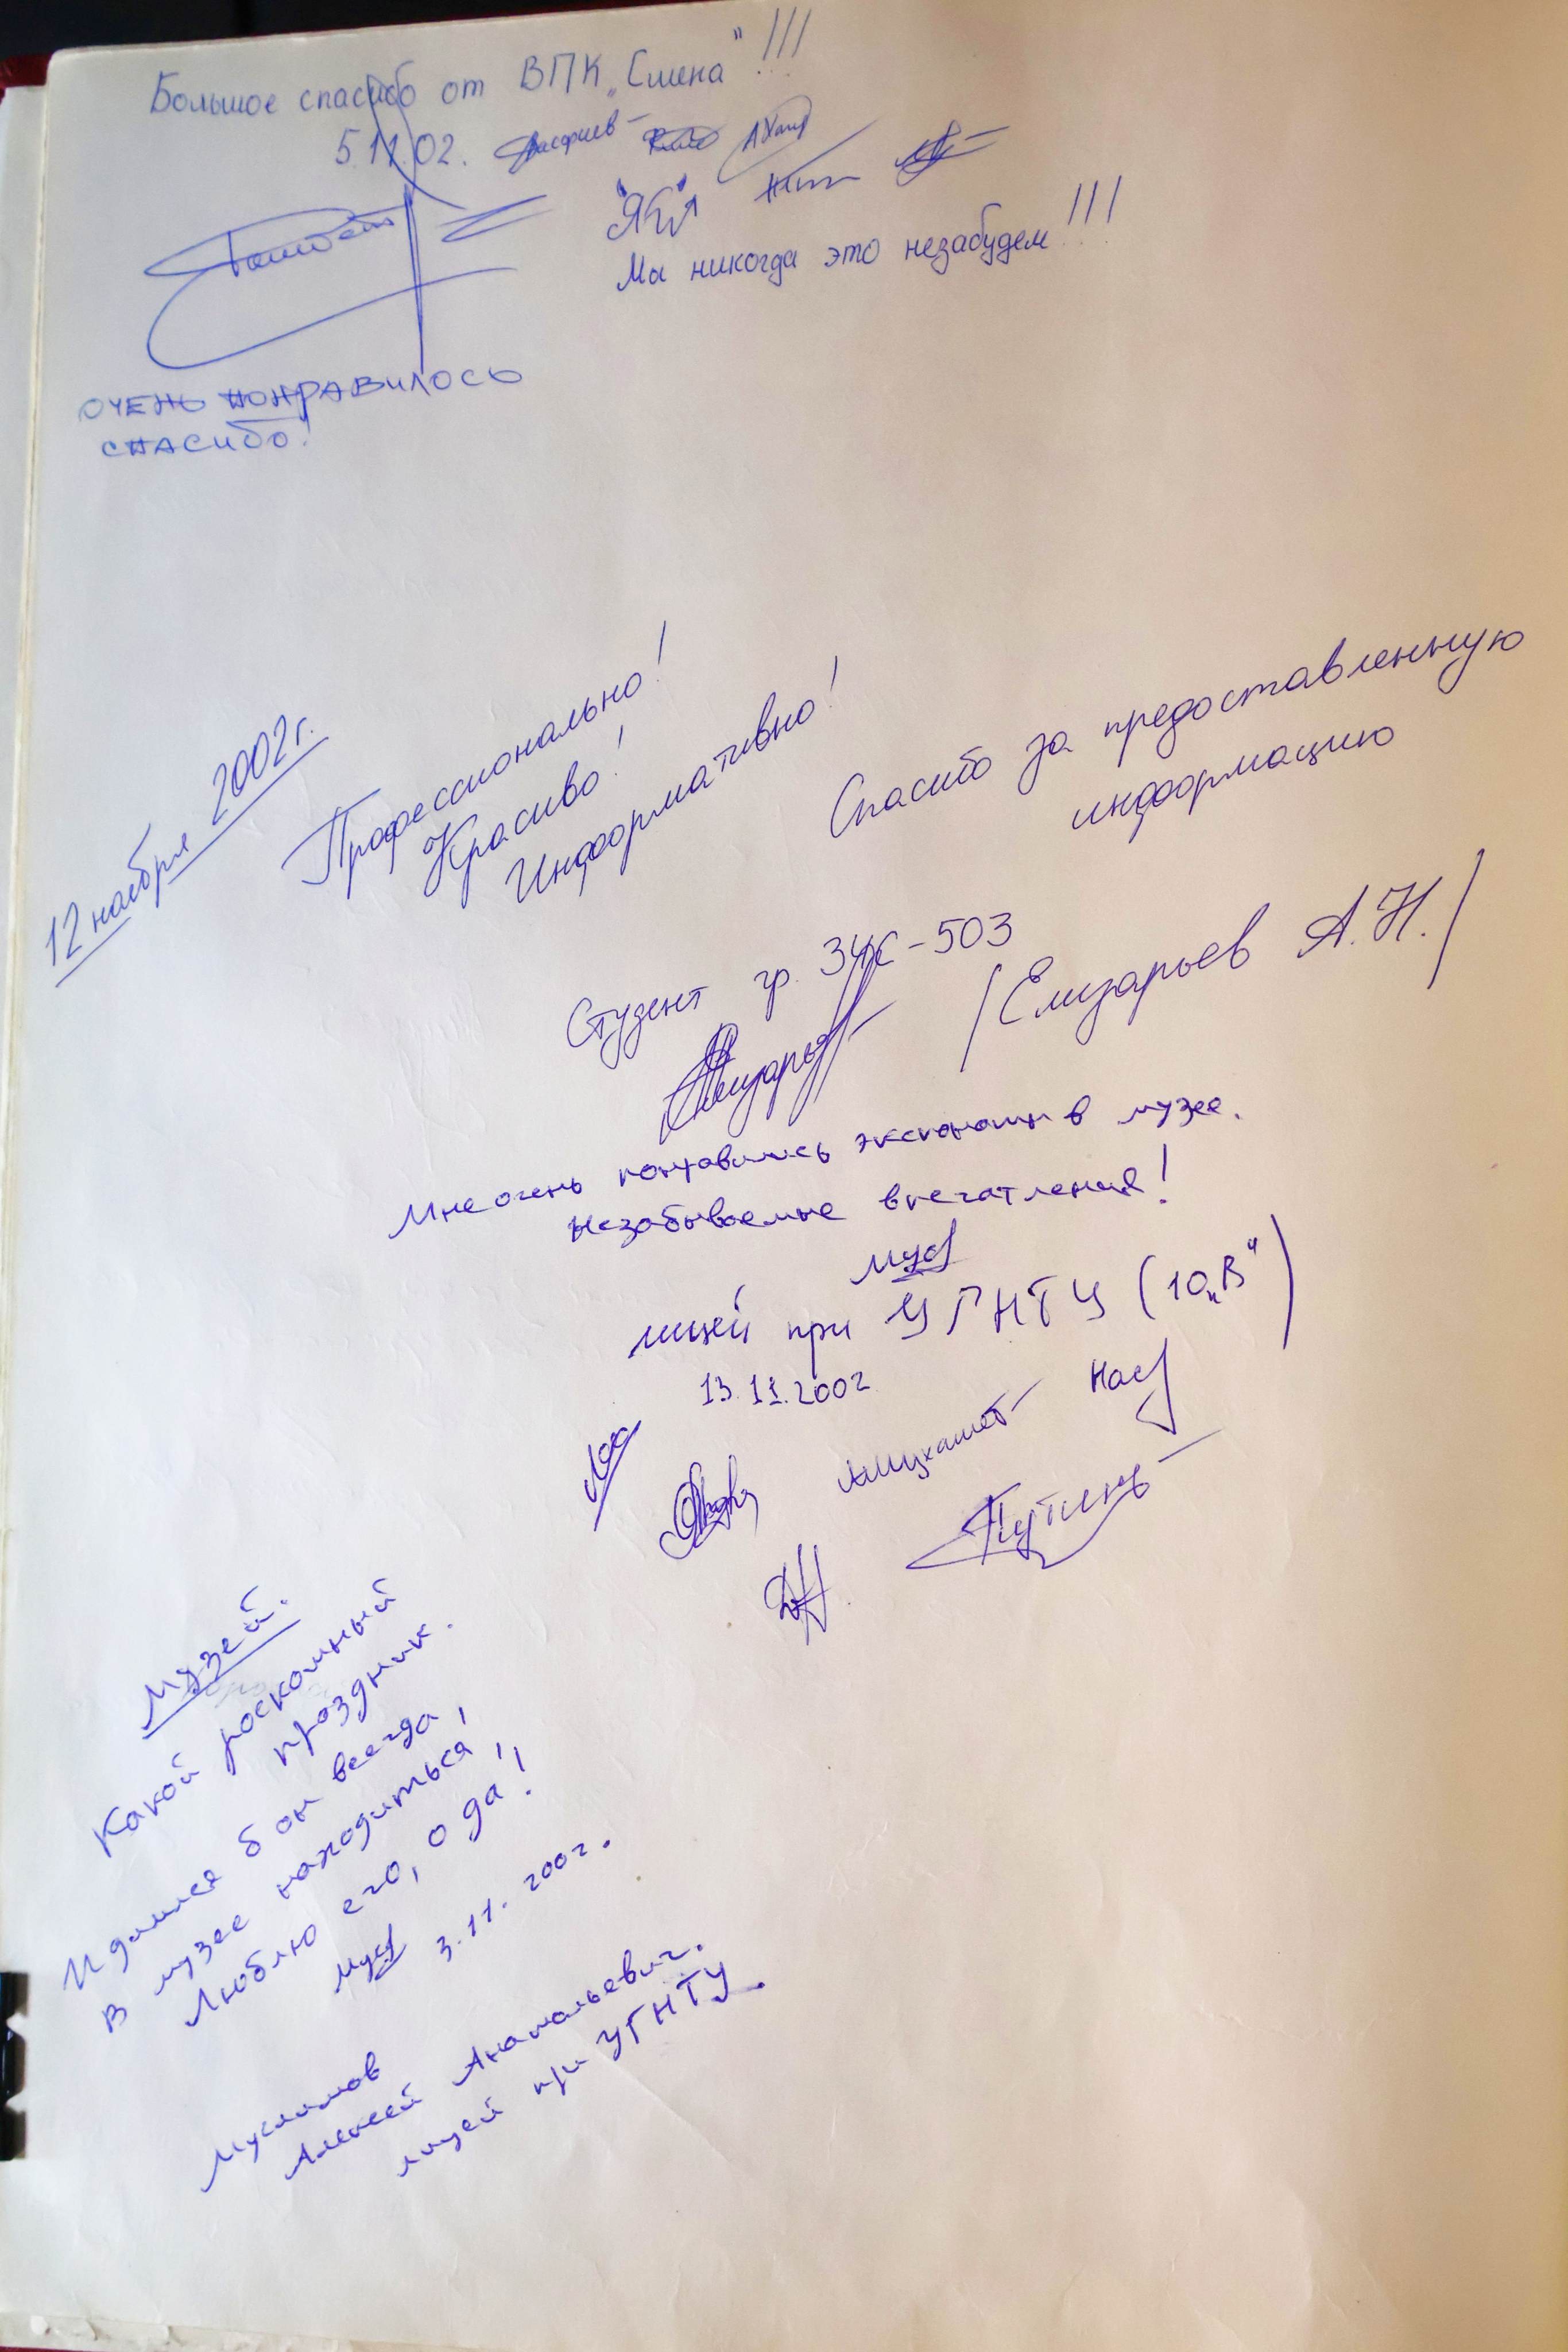 Большое спасибо от ВПК „Смена" !!!
5.11.02.
Мы никогда это незабудем!!!
ОЧЕНЬ ПОНРАВИЛОСЬ
СПАСИБО!
12 ноября 2002г.
Профессионально!
Красиво!
Информативно!
Спасибо за предоставленную
информацию
Студент гр. ЗЧС-503
/Елизарьев А.Н./
Мне очень понравились экспонаты в музее.
Незабываемые впечатления!
Мус
лицей при УГНТУ (10„В")
13.11.2002
Музей.
Какой роскошный
праздник.
И длился б он всегда,
В музее находиться,
Люблю его, о да!
Мус 3.11.2002.
Муслимов
Алексей Анатольевич.
лицей при УГНТУ.